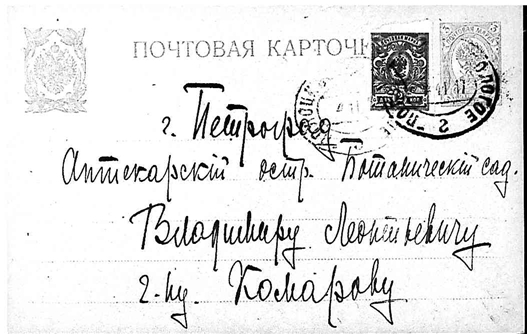 ПОЧТОВАЯ КАРТОЧ
г. Петроград
Аптекарскій остр. Ботаническій сад.
Владимиру Леонтьевичу
г-ну. Комарову